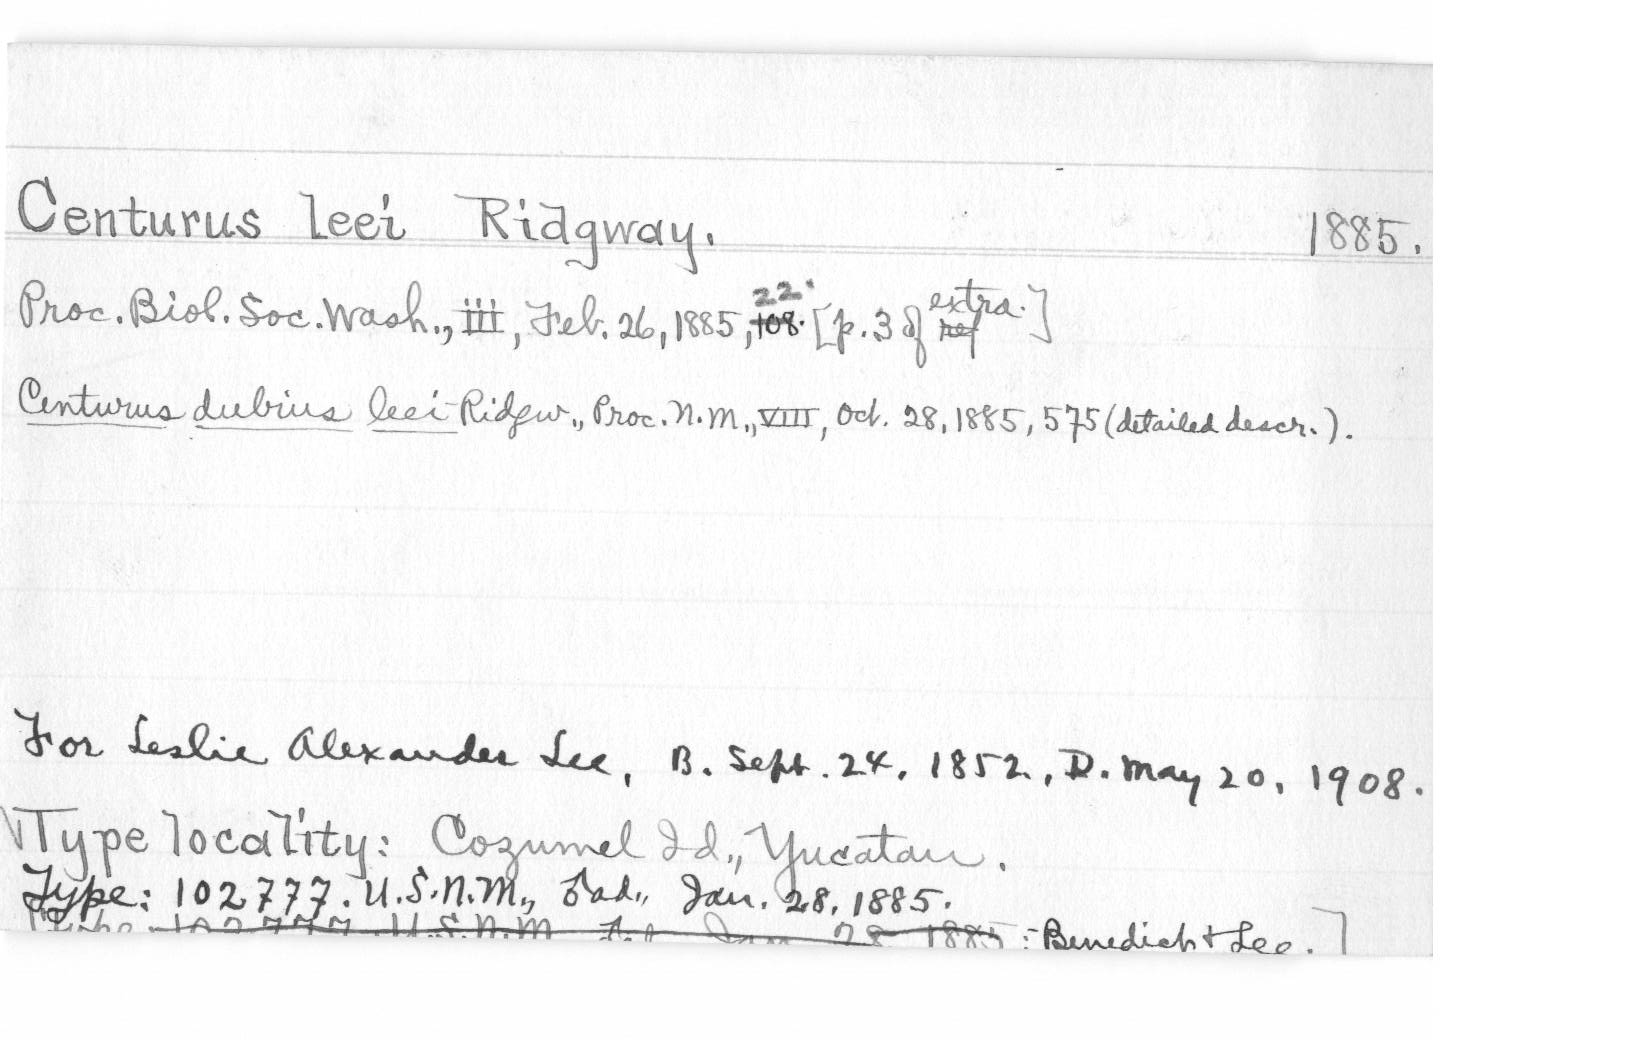 Centurus leei Ridgway. 1885.
Proc. Biol. Soc. Wash., III, Feb. 26, 1885, 108. 22. [p. 3 of extra.]
Centurus dubius leei Ridgw., Proc. N. M., VIII, Oct. 28, 1885, 575 (detailed descr.).
For Leslie Alexander Lee, B. Sept. 24, 1852, D. May 20, 1908.
Type locality: Cozumel Id., Yucatan.
Type: 102777. U.S.N.M., ♂ ad., Jan. 28, 1885.
[Type 102777 U.S.N.M. Jan 28 1885: Benedict & Lee.]